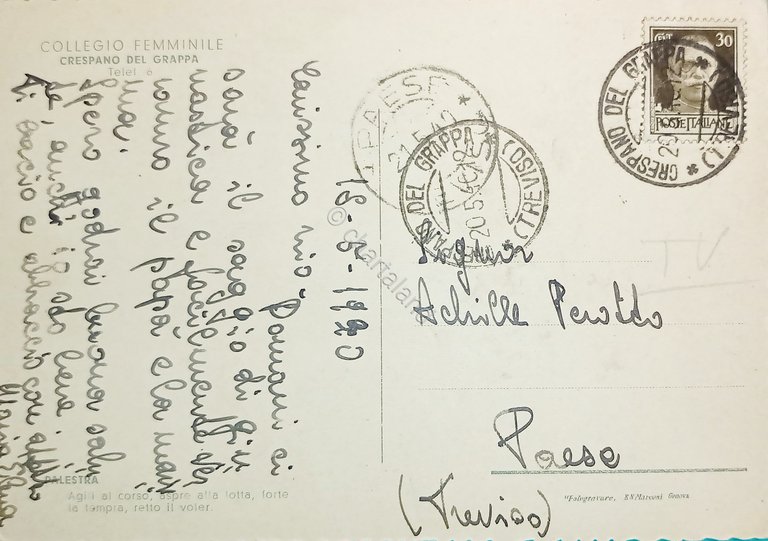 COLLEGIO FEMMINILE
CRESPANO DEL GRAPPA
Telef. 6
18-5-1940
Carissimo mio Domani ci
sarà il saggio di gin
nastica e facilmente ver
ranno il papà e la mam
ma.
Spero godrai buona salu
te, anch'io sto bene
Ti bacio e abbraccio con affetto
PALESTRA
Agili al corso, aspre alla lotta, forte
la tempra, retto il voler.
PAESE
21.5.40
CRESPANO DEL GRAPPA
(TREVISO)
20.5.40
POSTE ITALIANE
CENT 30
CRESPANO DEL GRAPPA
(TREVISO)
TV
Signor
Achille Perotto
Paese
(Treviso)
"Fotogravure. E N Marconi Genova
© chartaland